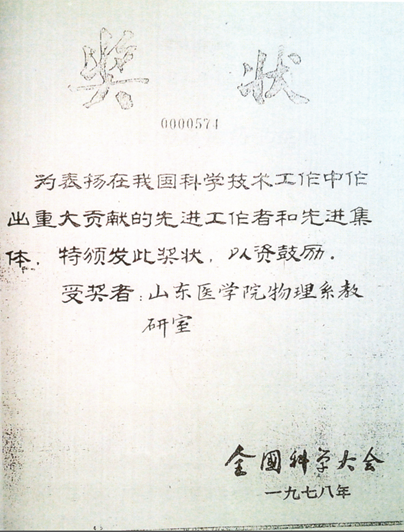 奖状
0000574
为表扬在我国科学技术工作中作
出重大贡献的先进工作者和先进集
体，特颁发此奖状，以资鼓励．
受奖者：山东医学院物理系教
研室
全国科学大会
一九七八年